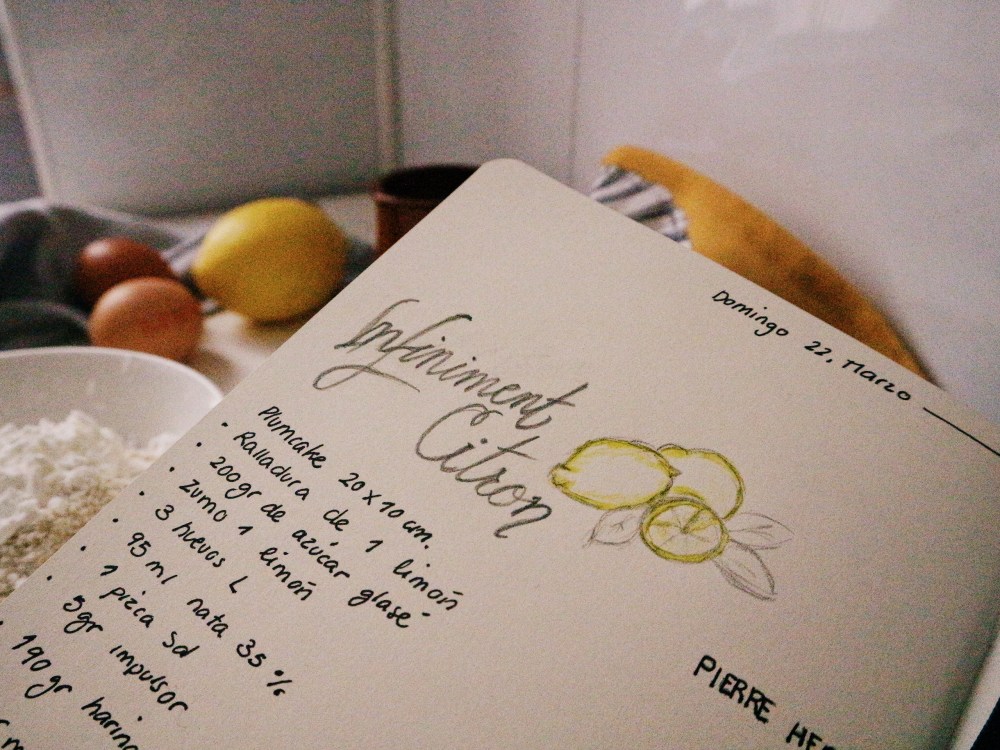 Domingo 22, Marzo
Infiniment
Citron
Plumcake 20 x 10 cm.
• Ralladura de 1 limón
• 200gr de azúcar glasé
• Zumo 1 limón
• 3 huevos L
• 95 ml nata 35 %
• 1 pizca sal
• 5gr impulsor
• 190gr harina
PIERRE